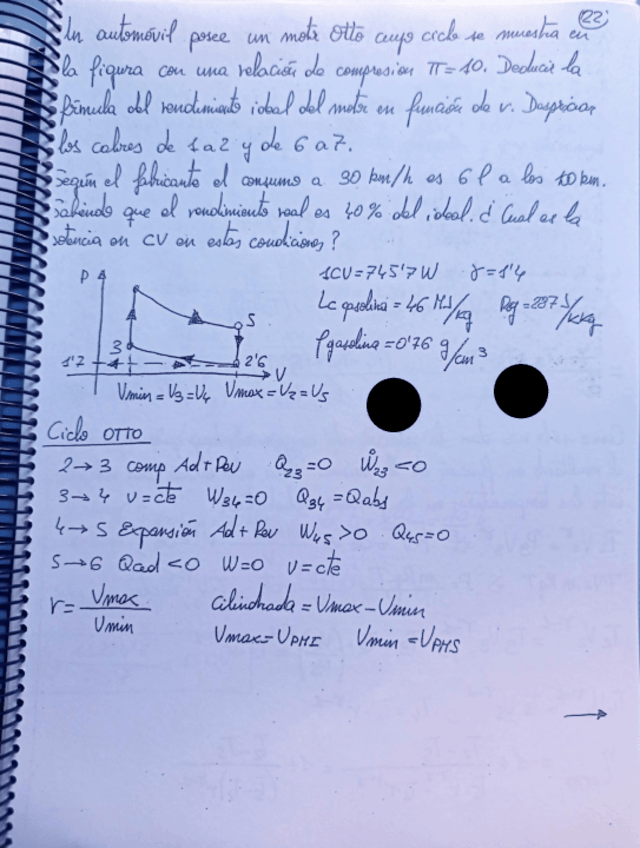 22
Un automóvil posee un motor Otto cuyo ciclo se muestra en
la figura con una relación de compresion π=10. Deducir la
fórmula del rendimiento ideal del motor en función de r. Despreciar
los calores de 1 a 2 y de 6 a 7.
Según el fabricante el consumo a 30 km/h es 6 l a los 10 km.
Sabiendo que el rendimiento real es 40% del ideal. ¿Cual es la
potencia en CV en estas condiciones?
1CV=745'7W γ=1'4
Lc gasolina = 46 MJ/kg Rg=287 J/kKg
ρgasolina=0'76 g/cm³
P
5
3
1'7
2'6
V
Vmin=V3=V4 Vmax=V2=V5
Ciclo OTTO
2→3 comp Ad+Rev Q23=0 W23<0
3→4 v=cte W34=0 Q34=Qabs
4→5 Expansión Ad+Rev W45>0 Q45=0
5→6 Qad<0 W=0 v=cte
r=Vmax/Vmin Cilindrada=Vmax-Vmin
Vmax=VPMI Vmin=VPMS
→